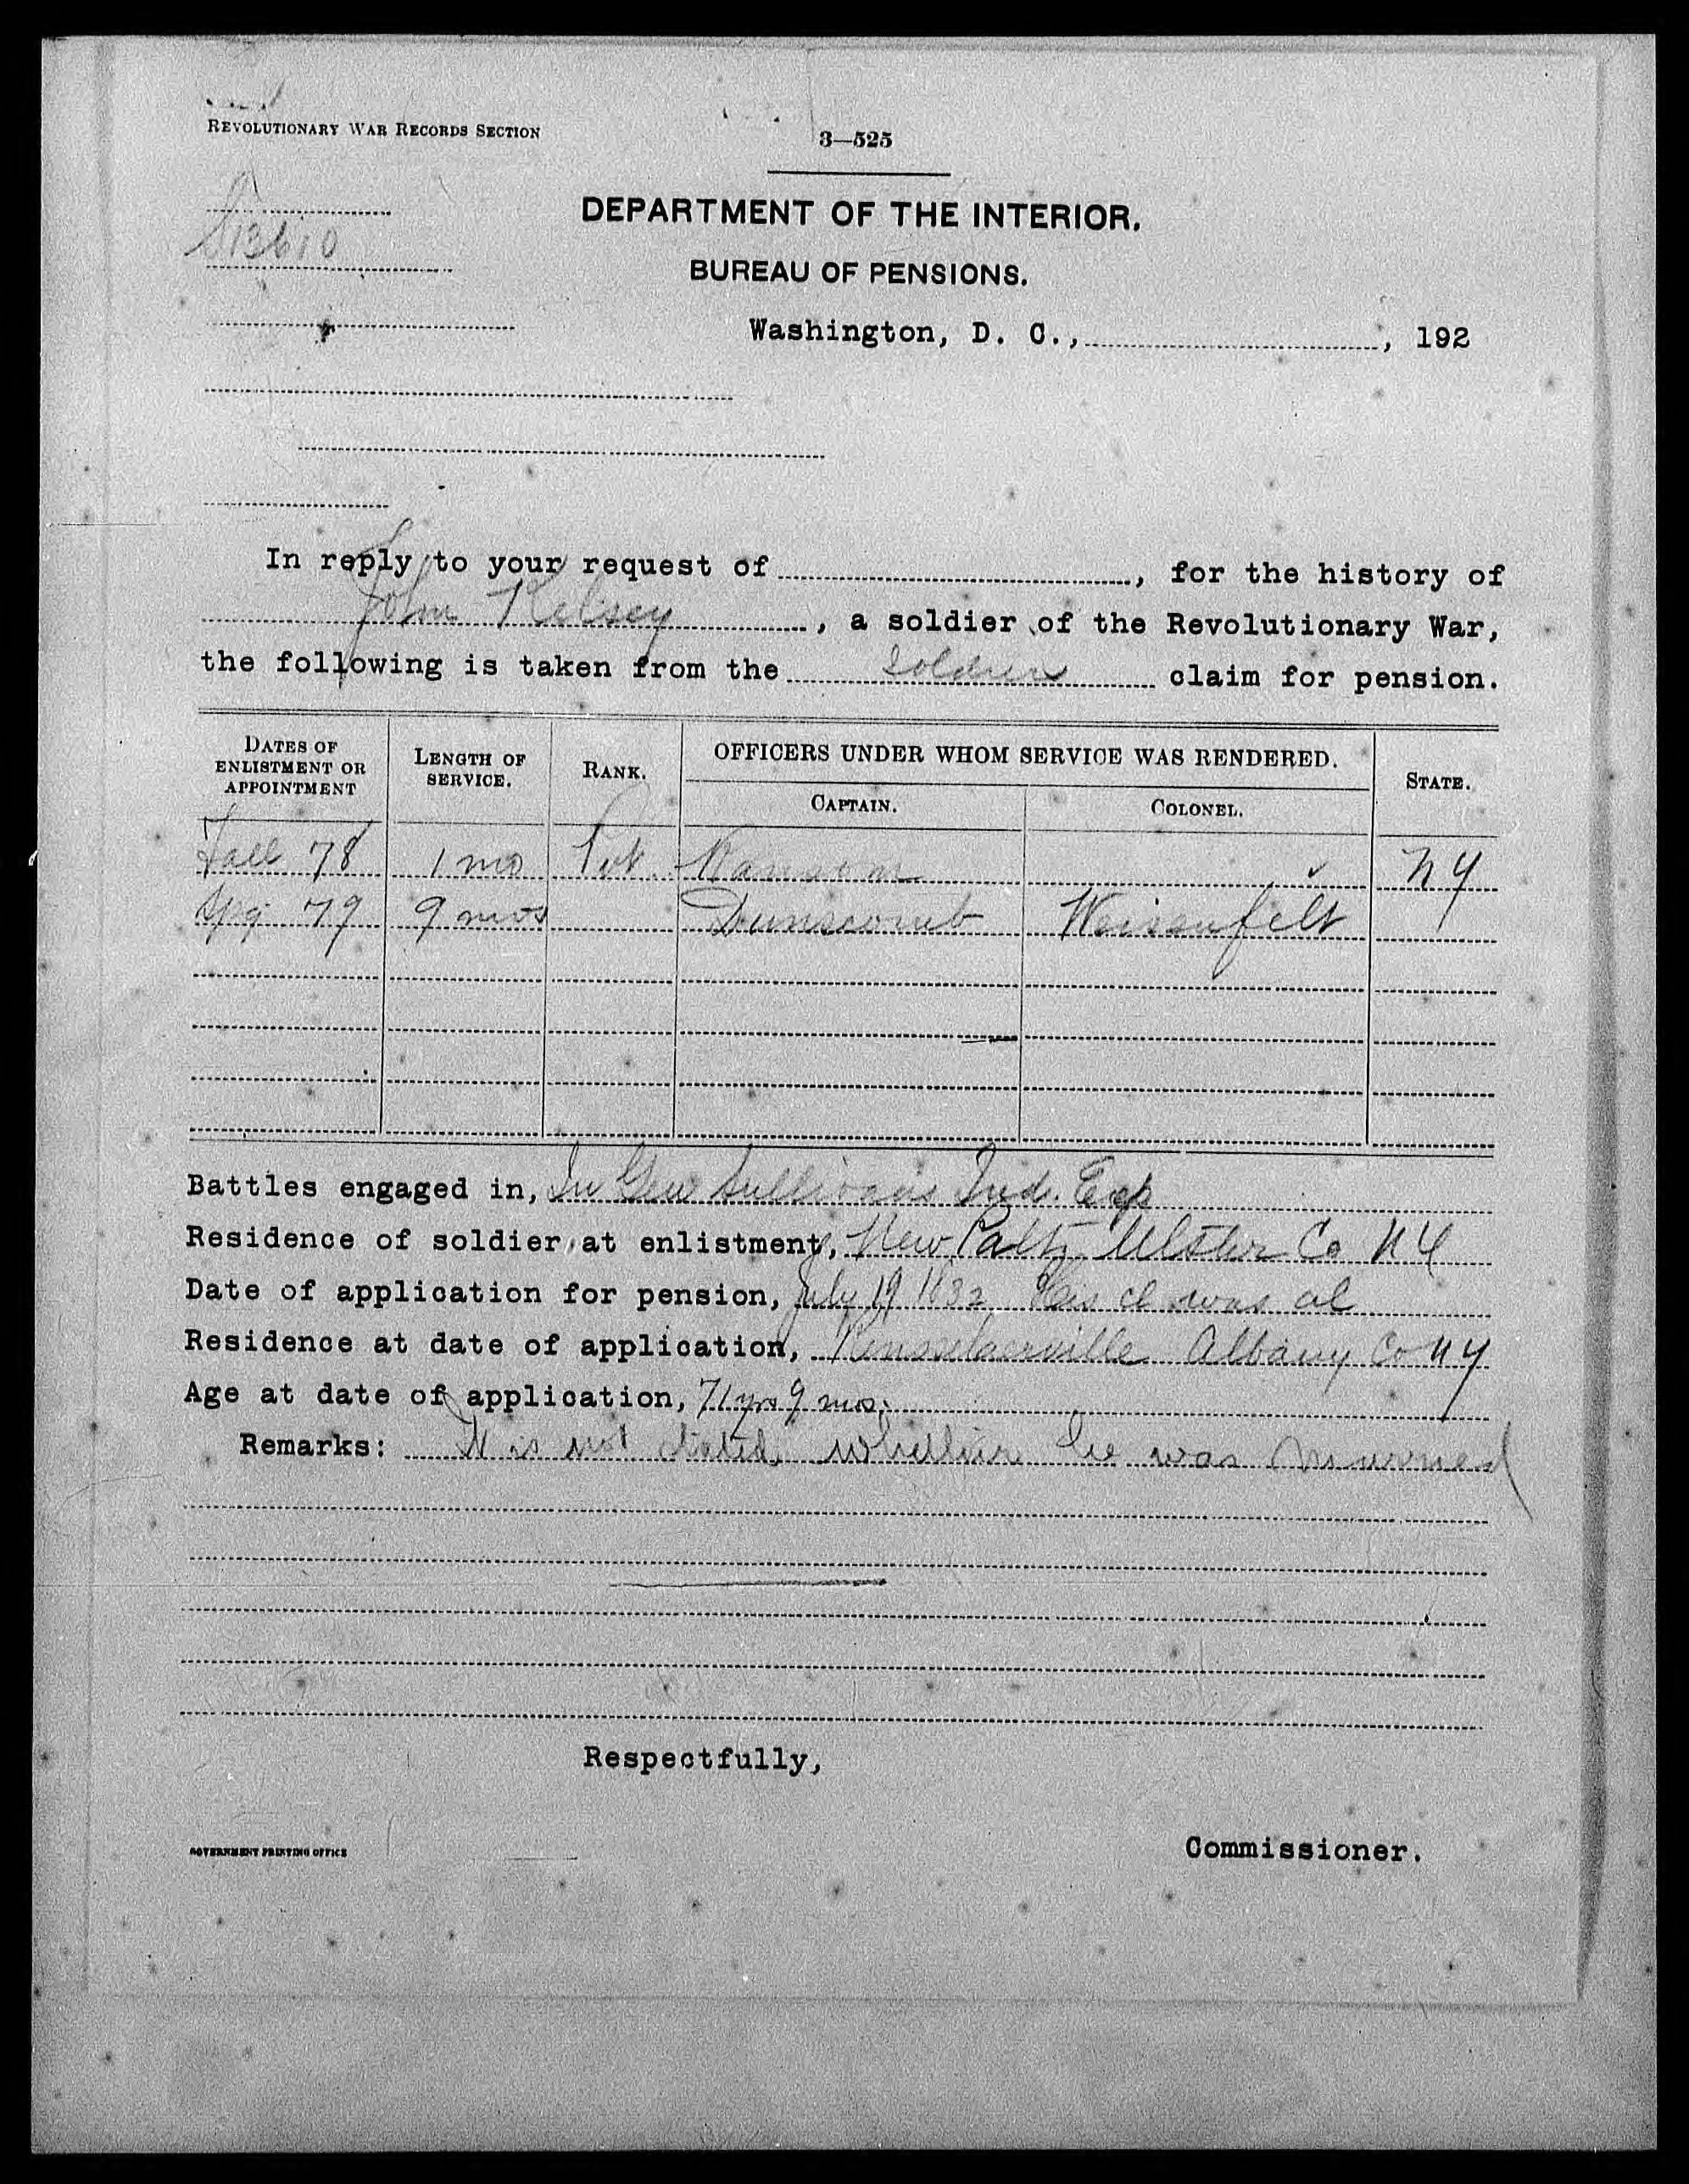 REVOLUTIONARY WAR RECORDS SECTION
3—525
DEPARTMENT OF THE INTERIOR.
S13610
BUREAU OF PENSIONS.
Washington, D. C., , 192
In reply to your request of , for the history of
John Kelsey , a soldier of the Revolutionary War,
the following is taken from the soldiers claim for pension.
DATES OF ENLISTMENT OR APPOINTMENT LENGTH OF SERVICE. RANK. OFFICERS UNDER WHOM SERVICE WAS RENDERED. STATE.
CAPTAIN. COLONEL.
Fall 78 1 mo Pvt. Ransom NY
Spg 79 9 mos Dunscomb Weisenfelt
Battles engaged in, In Gen Sullivans Ind. Exp
Residence of soldier at enlistment, New Paltz Ulster Co NY
Date of application for pension, July 19 1832 His cl was al
Residence at date of application, Rensselaerville Albany Co NY
Age at date of application, 71 yrs 9 mos.
Remarks: It is not stated whether he was married
Respectfully,
GOVERNMENT PRINTING OFFICE
Commissioner.